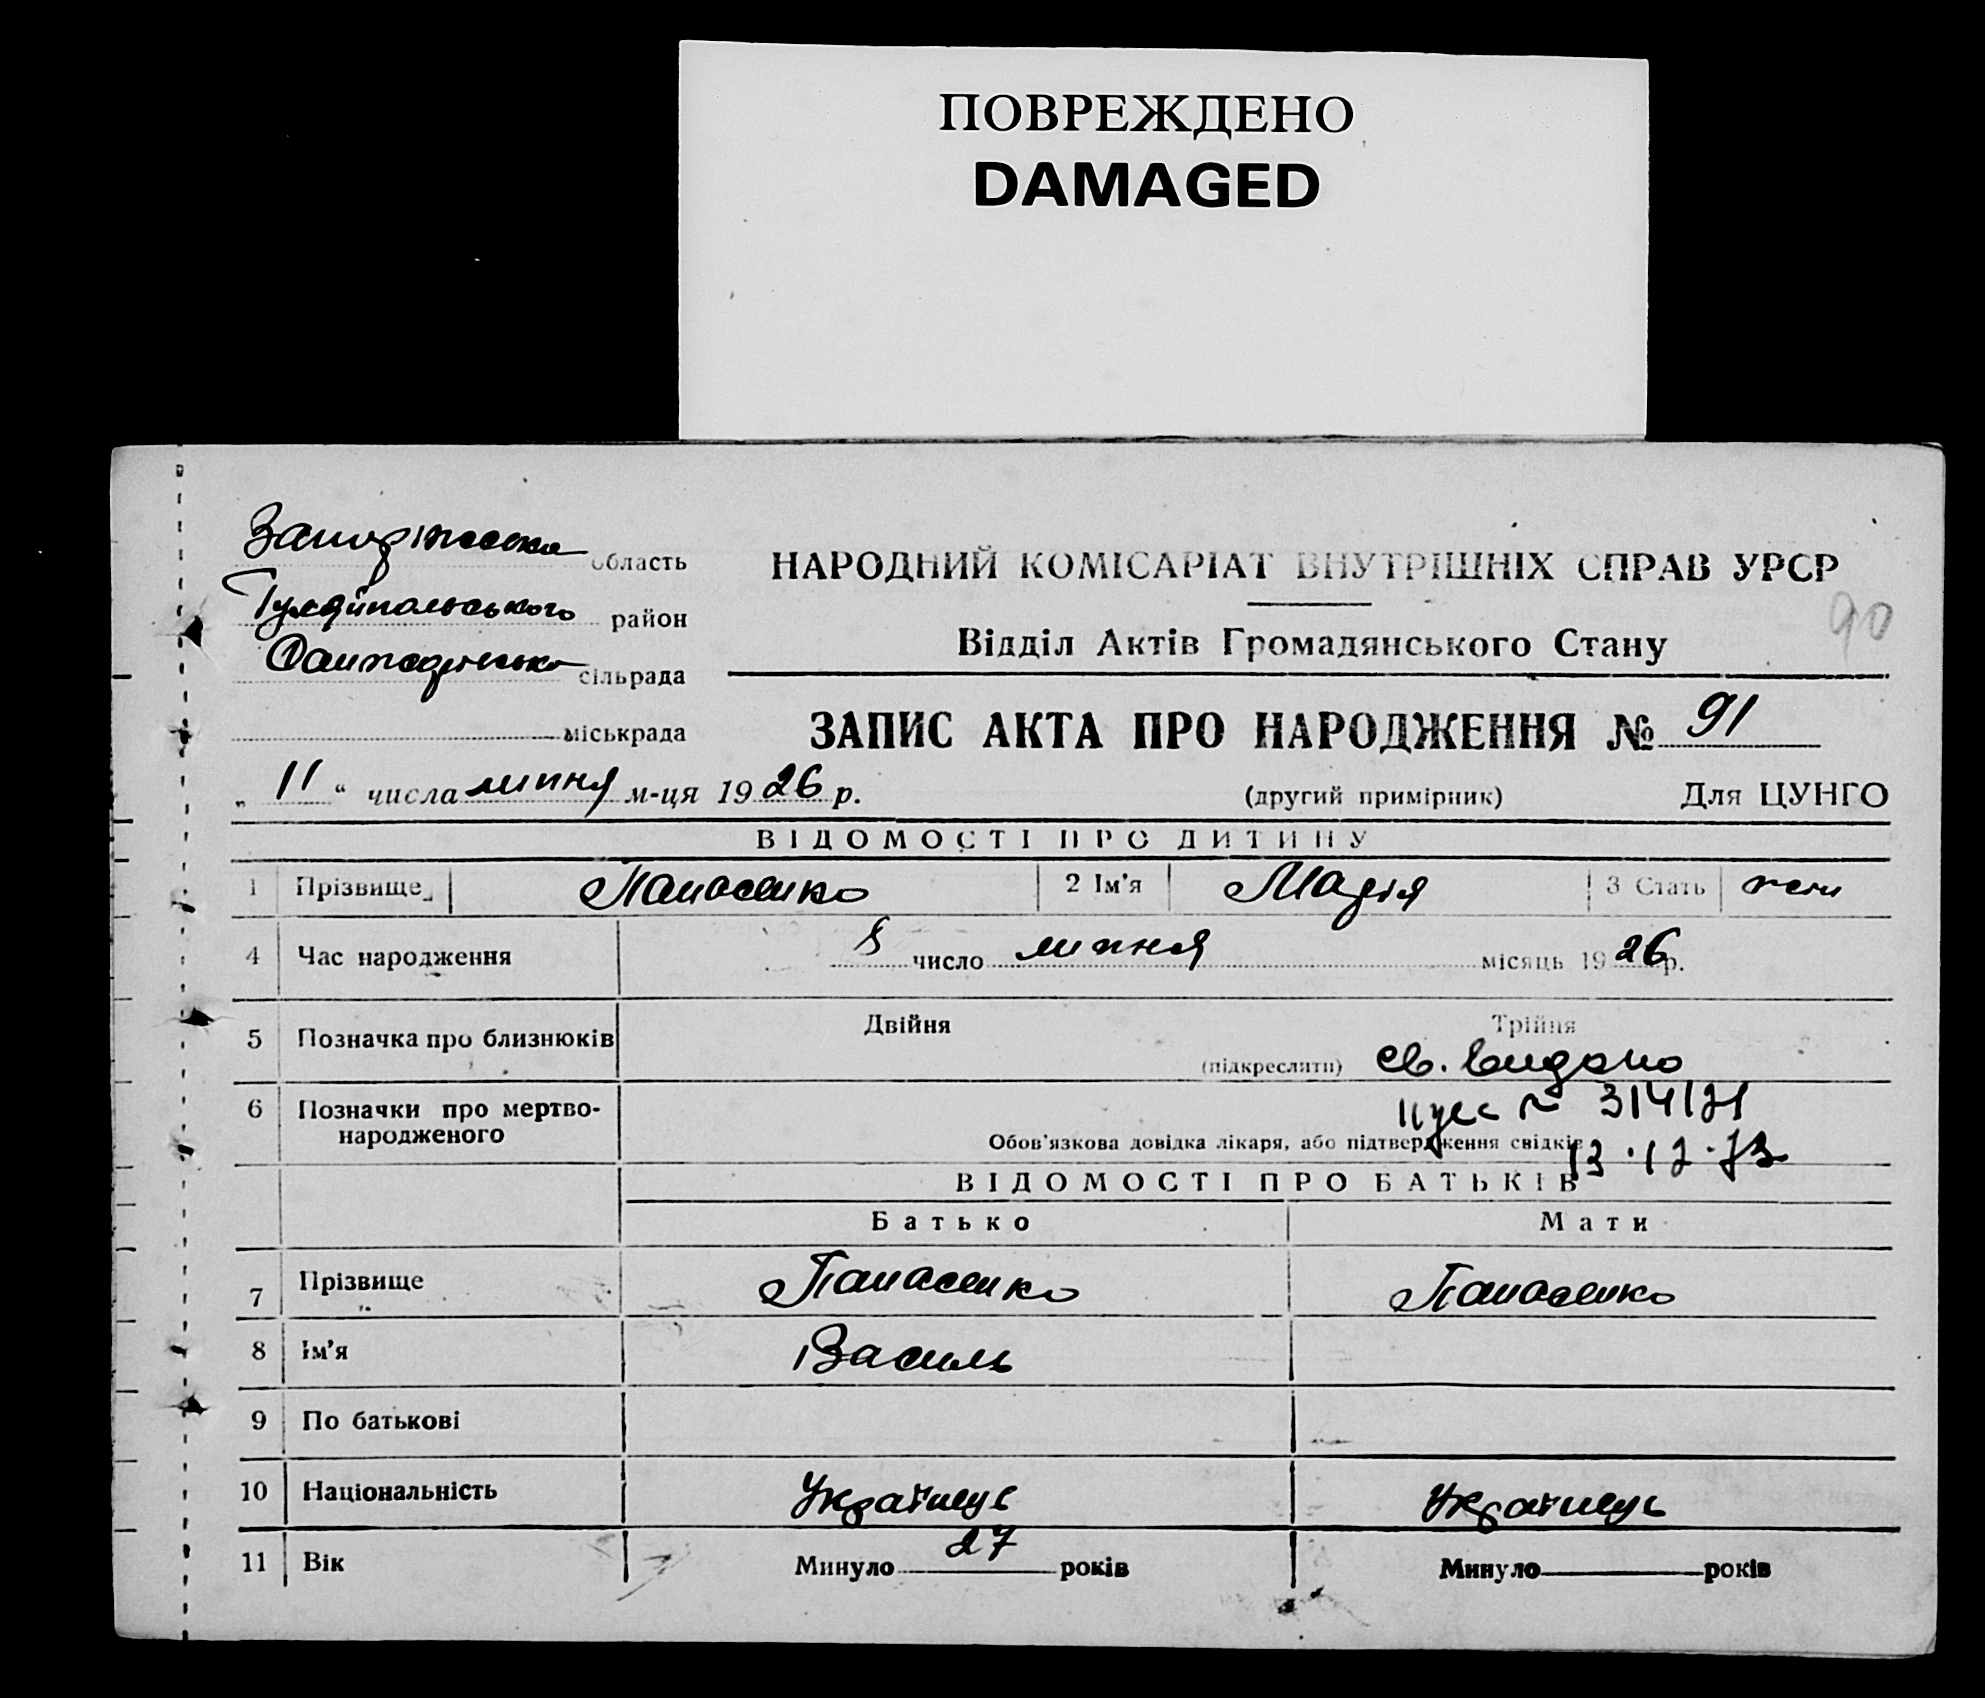 ПОВРЕЖДЕНО
DAMAGED
Запорізька область
Гуляйпольського район
сільрада
міськрада
НАРОДНИЙ КОМІСАРІАТ ВНУТРІШНІХ СПРАВ УРСР
90
Відділ Актів Громадянського Стану
ЗАПИС АКТА ПРО НАРОДЖЕННЯ № 91
„ 11 “ числа липня м-ця 1926 р.
(другий примірник) Для ЦУНГО
ВІДОМОСТІ ПРО ДИТИНУ
1 Прізвище Панасенко 2 Ім'я Марія 3 Стать жен
4 Час народження 8 число липня місяць 1926р.
5 Позначка про близнюків Двійня Трійня
(підкреслити) св. видано
6 Позначки про мертво-
народженого
Обов'язкова довідка лікаря, або підтвердження свідків
ВІДОМОСТІ ПРО БАТЬКІВ
Батько Мати
7 Прізвище Панасенко Панасенко
8 Ім'я Василь
9 По батькові
10 Національність Українец
11 Вік Минуло 27 років Минуло років